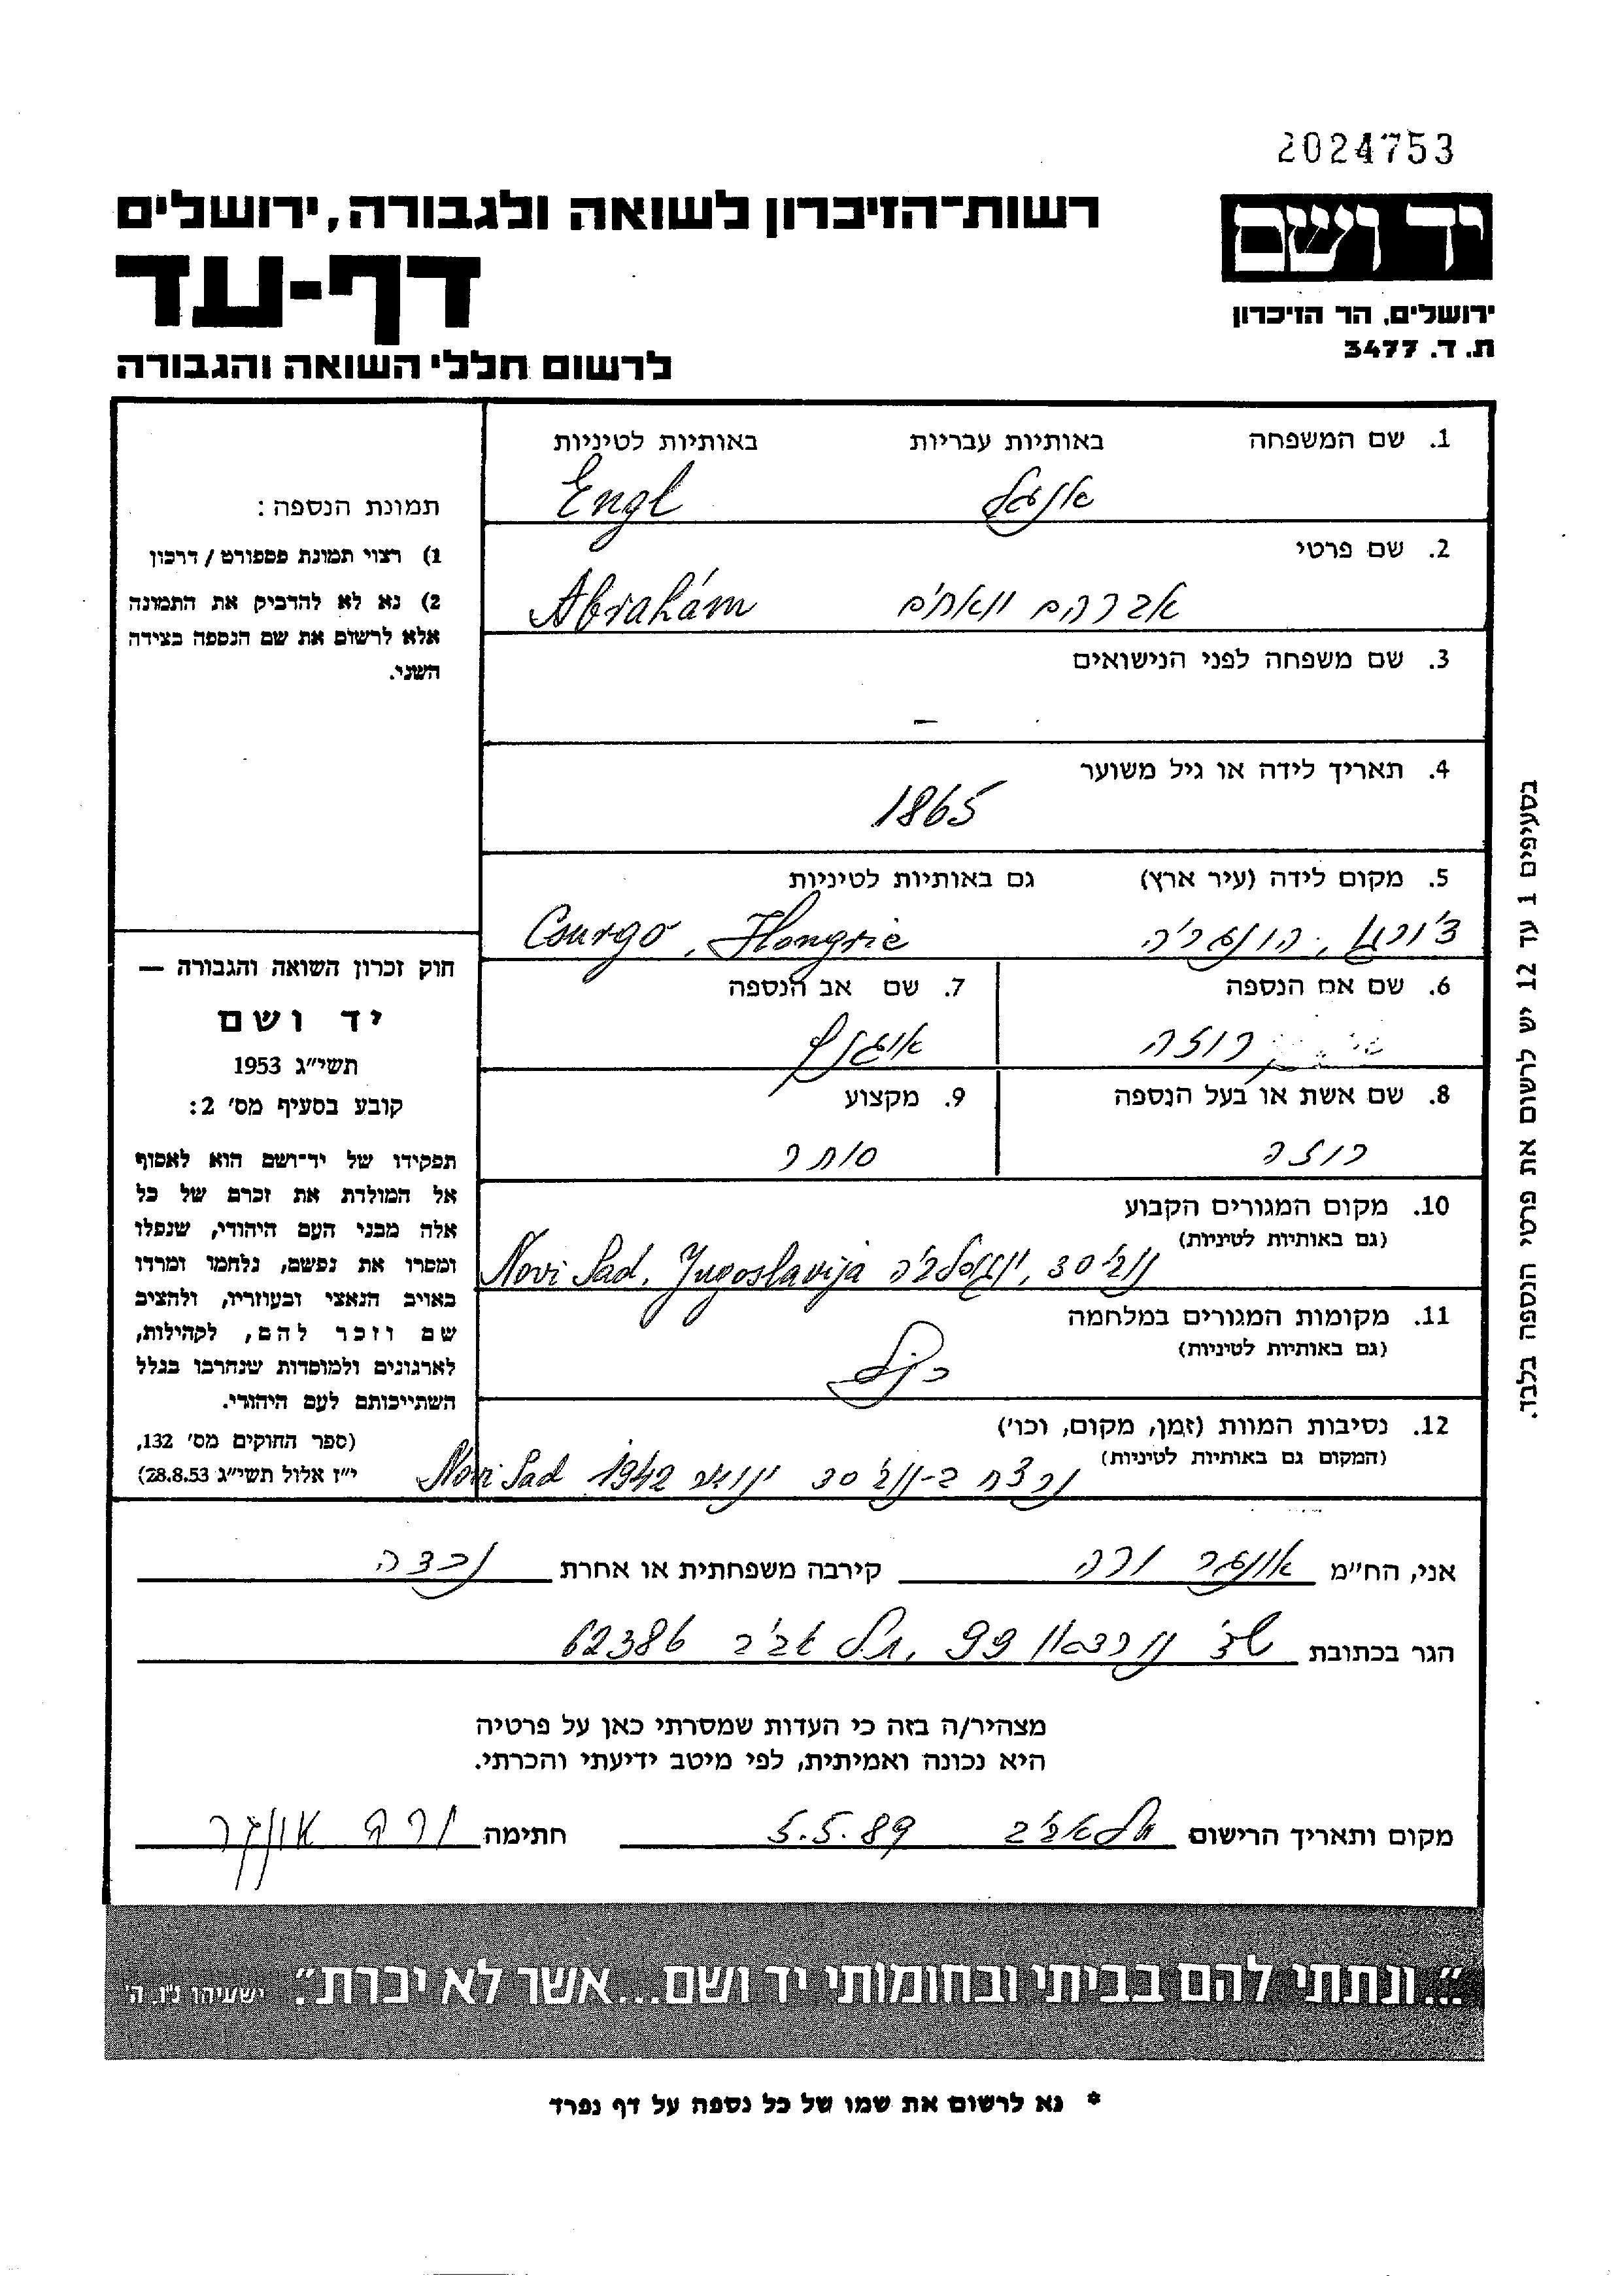 2024753
יד ושם
רשות־הזיכרון לשואה ולגבורה, ירושלים
דף-עד
ירושלים, הר הזיכרון
ת. ד. 3477
לרשום חללי השואה והגבורה
1. שם המשפחה באותיות עבריות באותיות לטיניות
אנגל Engl
2. שם פרטי
אברהם Abrahám
3. שם משפחה לפני הנישואים
–
4. תאריך לידה או גיל משוער
1865
5. מקום לידה (עיר ארץ) גם באותיות לטיניות
צ'ורגו, הונגריה Csurgo, Hongrie
6. שם אם הנספה 7. שם אב הנספה
רוזה אוגדולף
8. שם אשת או בעל הנספה 9. מקצוע
רוזה סוחר
10. מקום המגורים הקבוע
(גם באותיות לטיניות)
נובי סד, יוגוסלביה Novi Sad, Jugoslavija
11. מקומות המגורים במלחמה
(גם באותיות לטיניות)
כנ"ל
12. נסיבות המוות (זמן, מקום, וכו')
(המקום גם באותיות לטיניות)
נרצח ב-נובי סד ינואר 1942 Novi Sad
תמונת הנספה:
1) רצוי תמונת פספורט / דרכון
2) נא לא להדביק את התמונה
אלא לרשום את שם הנספה בצידה
השני.
חוק זכרון השואה והגבורה —
יד ושם
תשי״ג 1953
קובע בסעיף מס' 2:
תפקידו של יד־ושם הוא לאסוף
אל המולדת את זכרם של כל
אלה מבני העם היהודי, שנפלו
ומסרו את נפשם, נלחמו ומרדו
באויב הנאצי ובעוזריו, ולהציב
שם וזכר להם, לקהילות,
לארגונים ולמוסדות שנחרבו בגלל
השתייכותם לעם היהודי.
(ספר החוקים מס' 132,
י״ז אלול תשי״ג 28.8.53)
בסעיפים 1 עד 12 יש לרשום את פרטי הנספה בלבד.
אני, הח״מ אונגר ורה קירבה משפחתית או אחרת נכדה
הגר בכתובת שד' נורדאו 99, תל אביב 62386
מצהיר/ה בזה כי העדות שמסרתי כאן על פרטיה
היא נכונה ואמיתית, לפי מיטב ידיעתי והכרתי.
מקום ותאריך הרישום תל אביב 5.5.89 חתימה ורה אונגר
״...ונתתי להם בביתי ובחומותי יד ושם...אשר לא יכרת״. ישעיהו נ״ו, ה'
* נא לרשום את שמו של כל נספה על דף נפרד